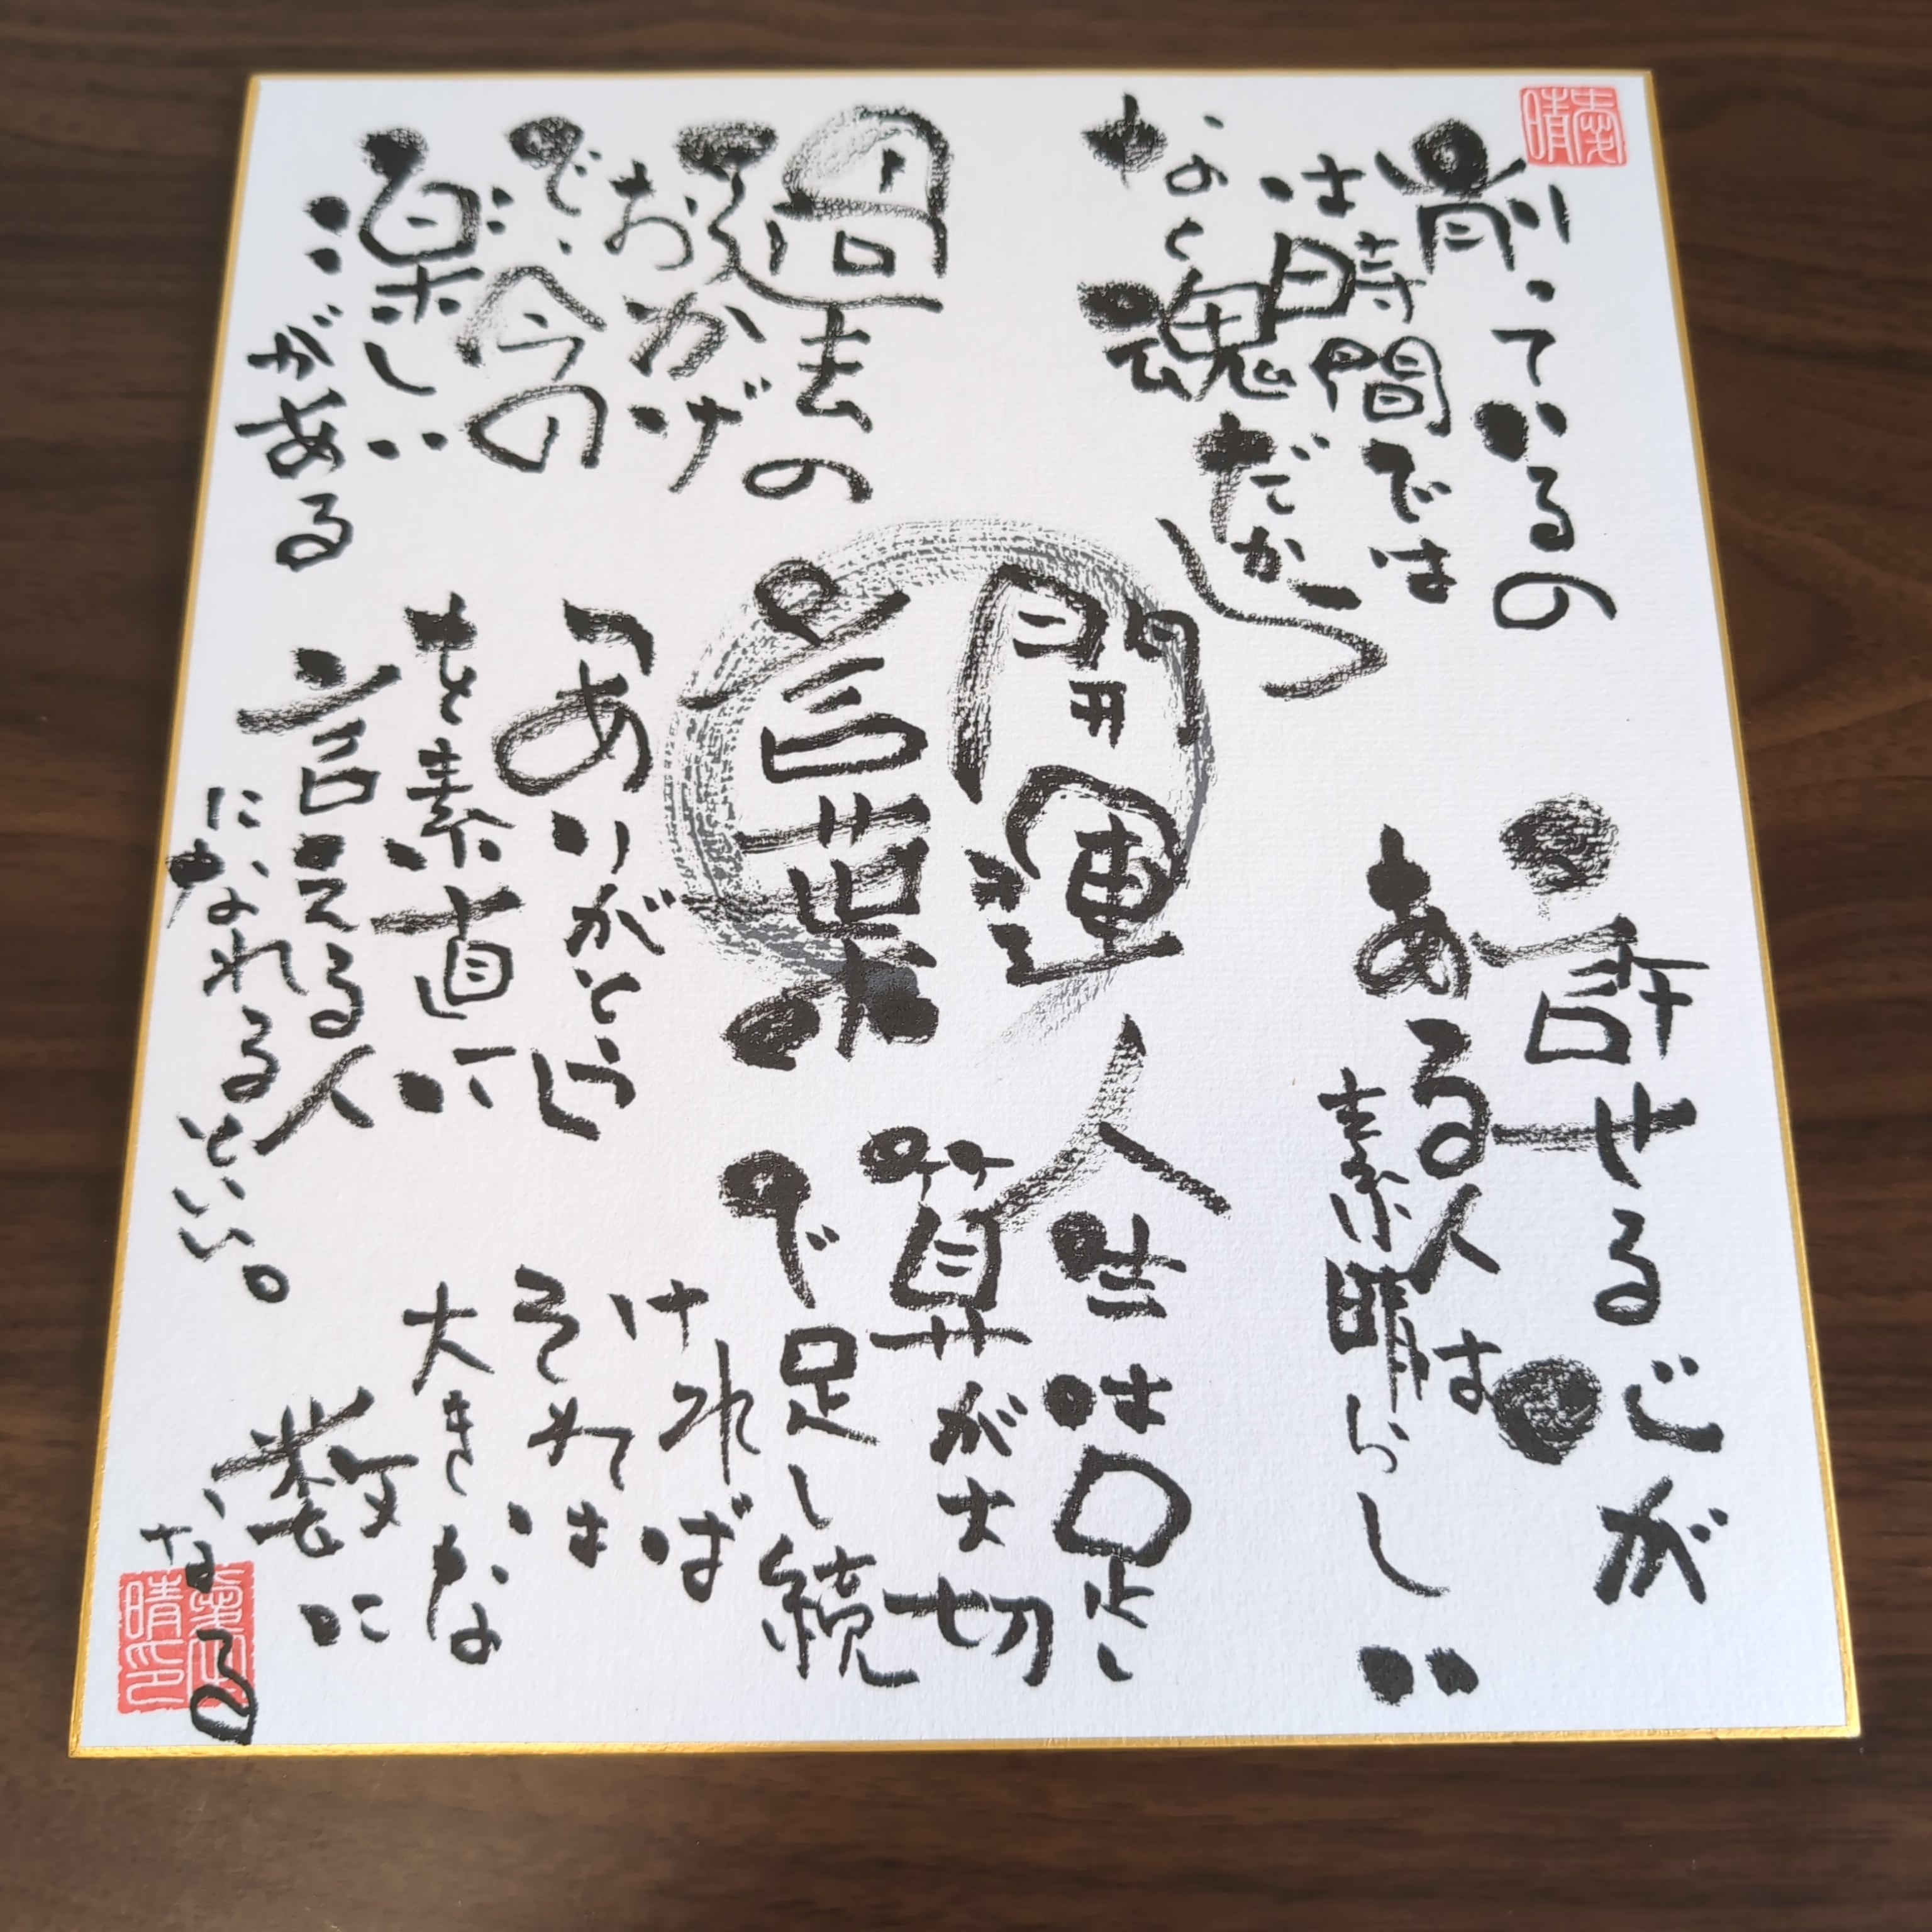 削っているの
は時間では
なく魂だから
許せる心が
ある人は
素晴らしい
開運
言葉
過去の
おかげ
で今の
楽しい
がある
人生は足し
算が大切
で足し続
ければ
それは
大きな
数に
なる
「ありがとう」
を素直に
言える人
になれるといい。